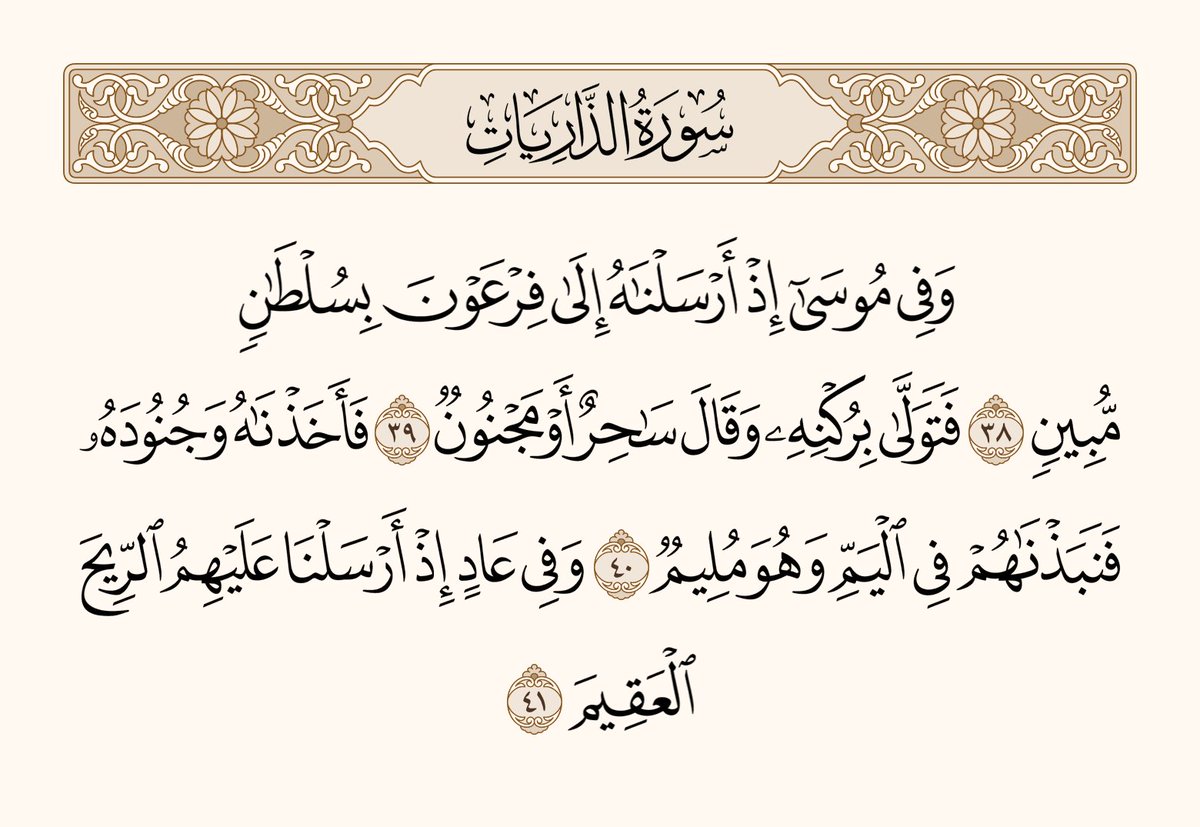 سُورَةُ الذَّارِيَاتِ
وَفِى مُوسَىٰٓ إِذْ أَرْسَلْنَٰهُ إِلَىٰ فِرْعَوْنَ بِسُلْطَٰنٍ
مُّبِينٍ ٣٨ فَتَوَلَّىٰ بِرُكْنِهِۦ وَقَالَ سَٰحِرٌ أَوْ مَجْنُونٌ ٣٩ فَأَخَذْنَٰهُ وَجُنُودَهُۥ
فَنَبَذْنَٰهُمْ فِى ٱلْيَمِّ وَهُوَ مُلِيمٌ ٤٠ وَفِى عَادٍ إِذْ أَرْسَلْنَا عَلَيْهِمُ ٱلرِّيحَ
ٱلْعَقِيمَ ٤١